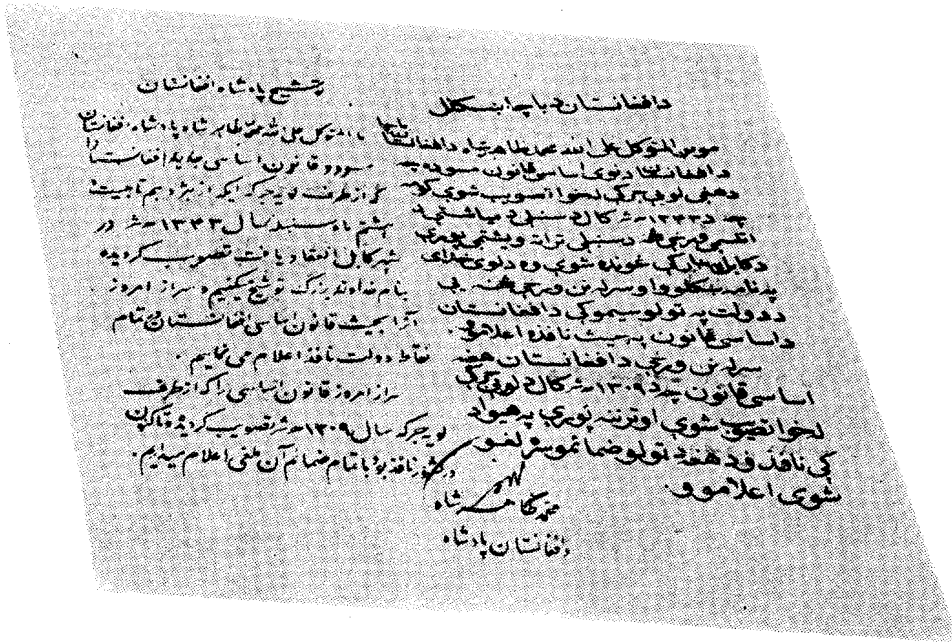 دافغانستان د پاچا ښکل
موږ المتوکل علی الله محمد ظاهر شاه دافغانستان پاچا
دافغانستان د نوی اساسی قانون مسوده چه
د هغی لویی جرګی لخوا تصویب شوی کومه
چه د ۱۳۴۳ هـ ش کال د سنبلی د میاشتی له
اتلسمی ورځی څخه د سنبلی تر
د کابل په ښار کی شوی وه د لوی خدای
په نامه ښکلو او سر له نن ورځی څخه یی
د دولت په ټولو سیمو کی د افغانستان
د اساسی قانون په حیث نافذه اعلاموو.
سر له نن ورځی د افغانستان هغه
اساسی قانون چه د ۱۳۰۹ هـ ش کال د لویی جرګی
لخوا تصویب شوی او تر ننه پوری په هیواد
کی نافذ ؤ د هغه د ټولو ضمائمو سره لغو
شوی اعلاموو.
توشیح پادشاه افغانستان
ما المتوکل علی الله محمد ظاهر شاه پادشاه افغانستان
مسوده قانون اساسی جدید افغانستان را
که از طرف لویه جرگه ایکه از هژدهم تا بیست و
هشتم ماه سنبله سال ۱۳۴۳ هـ ش در
شهر کابل انعقاد یافت تصویب گردیده
بنام خداوند بزرگ توشیح میکنیم و سر از امروز
آنرا بحیث قانون اساسی افغانستان در تمام
نقاط دولت نافذ اعلام می نمایم.
سر از امروز قانون اساسی را که از طرف
لویه جرگه سال ۱۳۰۹ هـ ش تصویب گردیده و تاکنون
در کشور نافذ بود با تمام ضمائم آن ملغی اعلام میداریم.
محمد ظاهر شاه
دافغانستان پادشاه